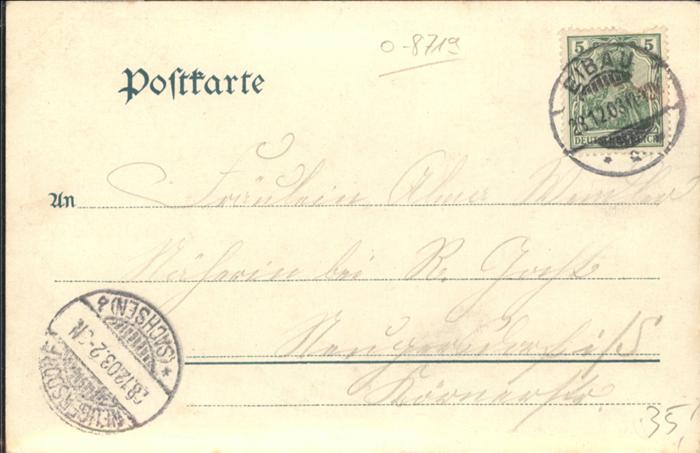 o-8719
Postkarte
5 5
DEUTSCHES REICH
EIBAU
28.12.03
An Fräulein Alma
Näherin bei R.
Neugersdorf i/S
Körnerstr.
NEUGERSDORF
28.12.03. 2-3N.
* (SACHSEN) *
35,